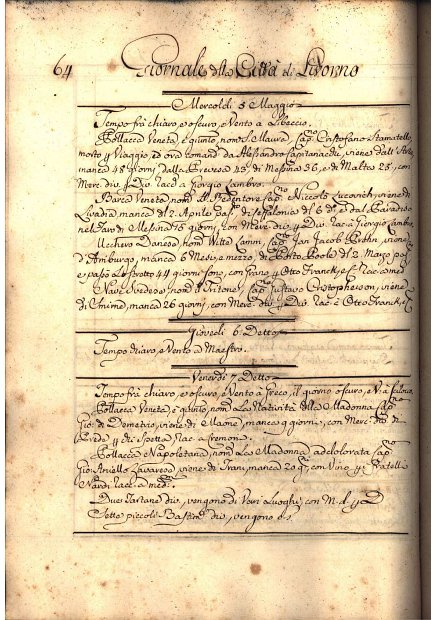 64 Giornale della Città di Livorno
Mercoldi 5 Maggio
Tempo frà chiaro, e oscuro, e Vento a Libeccio.
Pollacca Veneta, è giunto, nom. S. Maura, Capno Cristofano Stamatello
morto p Viaggio, ed ora comand. da Alesandro Capitanachi, viene dall'Arta
manca 48 giorni, dalla Prevesa 43, di Mesina 36, e di Malta 23, con
Merc. div. p Div. racc. a Giorgio Cambro.
Barca Veneta, nom. Il Redentore Capno Niccolò Lucovich, viene di
Livadia, manca dl 2 Aprile pas. di Cefalonia dl 6 d. e dal Paradiso
nel Faro di Mesina 15 giorni, con Merc. div. p Div. racc. a Giorgio Cambro
Uchero Danese, nom. Witte Lamm, Capno Jan Jacob Brohn, viene
d'Amburgo, manca 6 Mesi, e mezzo, di Porto Poole dl 2 Marzo pas.
e pasò Lo stretto 44 giorni sono, con Grano p Otto Franck, e C. racc. come d.
Nave Svedese, nom. Il Tritone, Capno Gustavo Cristopherson, viene
di manca 26 giorni, con Merc. div. p Div. racc. a Otto Franck, e C.
Giovedì 6 Detto
Tempo chiaro, e Vento a Maestro.
Venerdì 7 Detto
Tempo frà chiaro, e oscuro, e Vento a Greco, il giorno oscuro, e V. a Scilocco
Pollacca Veneta, è giunto, nom. La Natività della Madonna Capno
Gio: di Demetrio, viene di Maone, manca 9 giorni, con Merc. div. di
Preda p Chi Spetta racc. a
Pollacca Napoletana, nom. La Madonna adolorata Capno
Gio: Aniello Zavareso, viene di Trani, manca 20 g. con Vino p i Fratelli
Nardi racc. a med.
Due Tartane div. vengono di Vari Luoghi, con M. d. p D
Sette piccoli Bastim. div. vengono